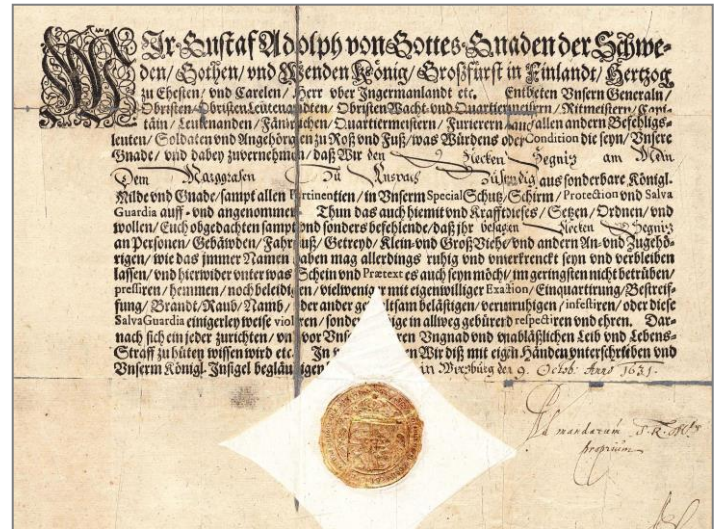 WIr Gustaf Adolph von Gottes Gnaden der Schwe-
den/ Gothen/ vnd Wenden König/ Großfürst in Finlandt/ Hertzog
zu Ehesten/ vnd Carelen/ Herr vber Ingermanlandt etc. Entbieten Vnsern Generaln/
Obristen/ Obristen Leutenandten/ Obristen Wacht- vnd Quartiermeistern/ Ritmeistern/ Capi-
täin/ Leutenanden/ Fänrichen/ Quartiermeistern/ Furierern/ vnd allen andern Befehligs-
leuten/ Soldaten vnd Angehörgen zu Roß vnd Fuß/ was Würdens oder Condition die seyn/ Vnsere
Gnade/ vnd dabey zuvernehmen/ daß Wir den Flecken Segnitz am Mein
Dem Marggrafen Zu Zuständig aus sonderbare Königl.
Milde vnd Gnade/ sampt allen Pertinentien/ in Vnserm Special Schutz/ Schirm/ Protection vnd Salva
Guardia auff- vnd angenommen. Thun das auch hiemit vnd Krafft dieses/ Setzen/ Ordnen/ vnd
wollen/ Euch obgedachten sampt vnd sonders befehlende/ daß jhr besagten Flecken Segnitz
an Personen/ Gebäwden/ Fahrnuß/ Getreyd/ Klein- vnd Groß Viehe/ vnd andern An- vnd Zugehö-
rigen/ wie das jmmer Namen haben mag allerdings ruhig vnd vnverkrenckt seyn vnd verbleiben
lassen/ vnd hierwider vnter was Schein vnd Prætext es auch seyn möcht/ im geringsten nicht betrüben/
pressiren/ hemmen/ noch beleidigen/ vielweniger mit eigenwilliger Exaction/ Einquartirung/ Bestreif-
fung/ Brandt/ Raub/ Namb/ oder ander gewaltsam belästigen/ verunruhigen/ infestiren/ oder diese
Salva Guardia einigerley weise violiren/ sondern selbige in allweg gebürend respectiren vnd ehren. Dar-
nach sich ein jeder zurichten/ vnd vor Vnser Vngnad vnd vnabläßlichen Leib vnd Lebens-
Straff zu hüten wissen wird etc. In Wir diß mit eigen Händen vnterschrieben vnd
Vnserm Königl. Insigel begläubigen in Wirzburg den 9. Octob. Anno 1631.
Ad mandatum S. R. M.
proprium